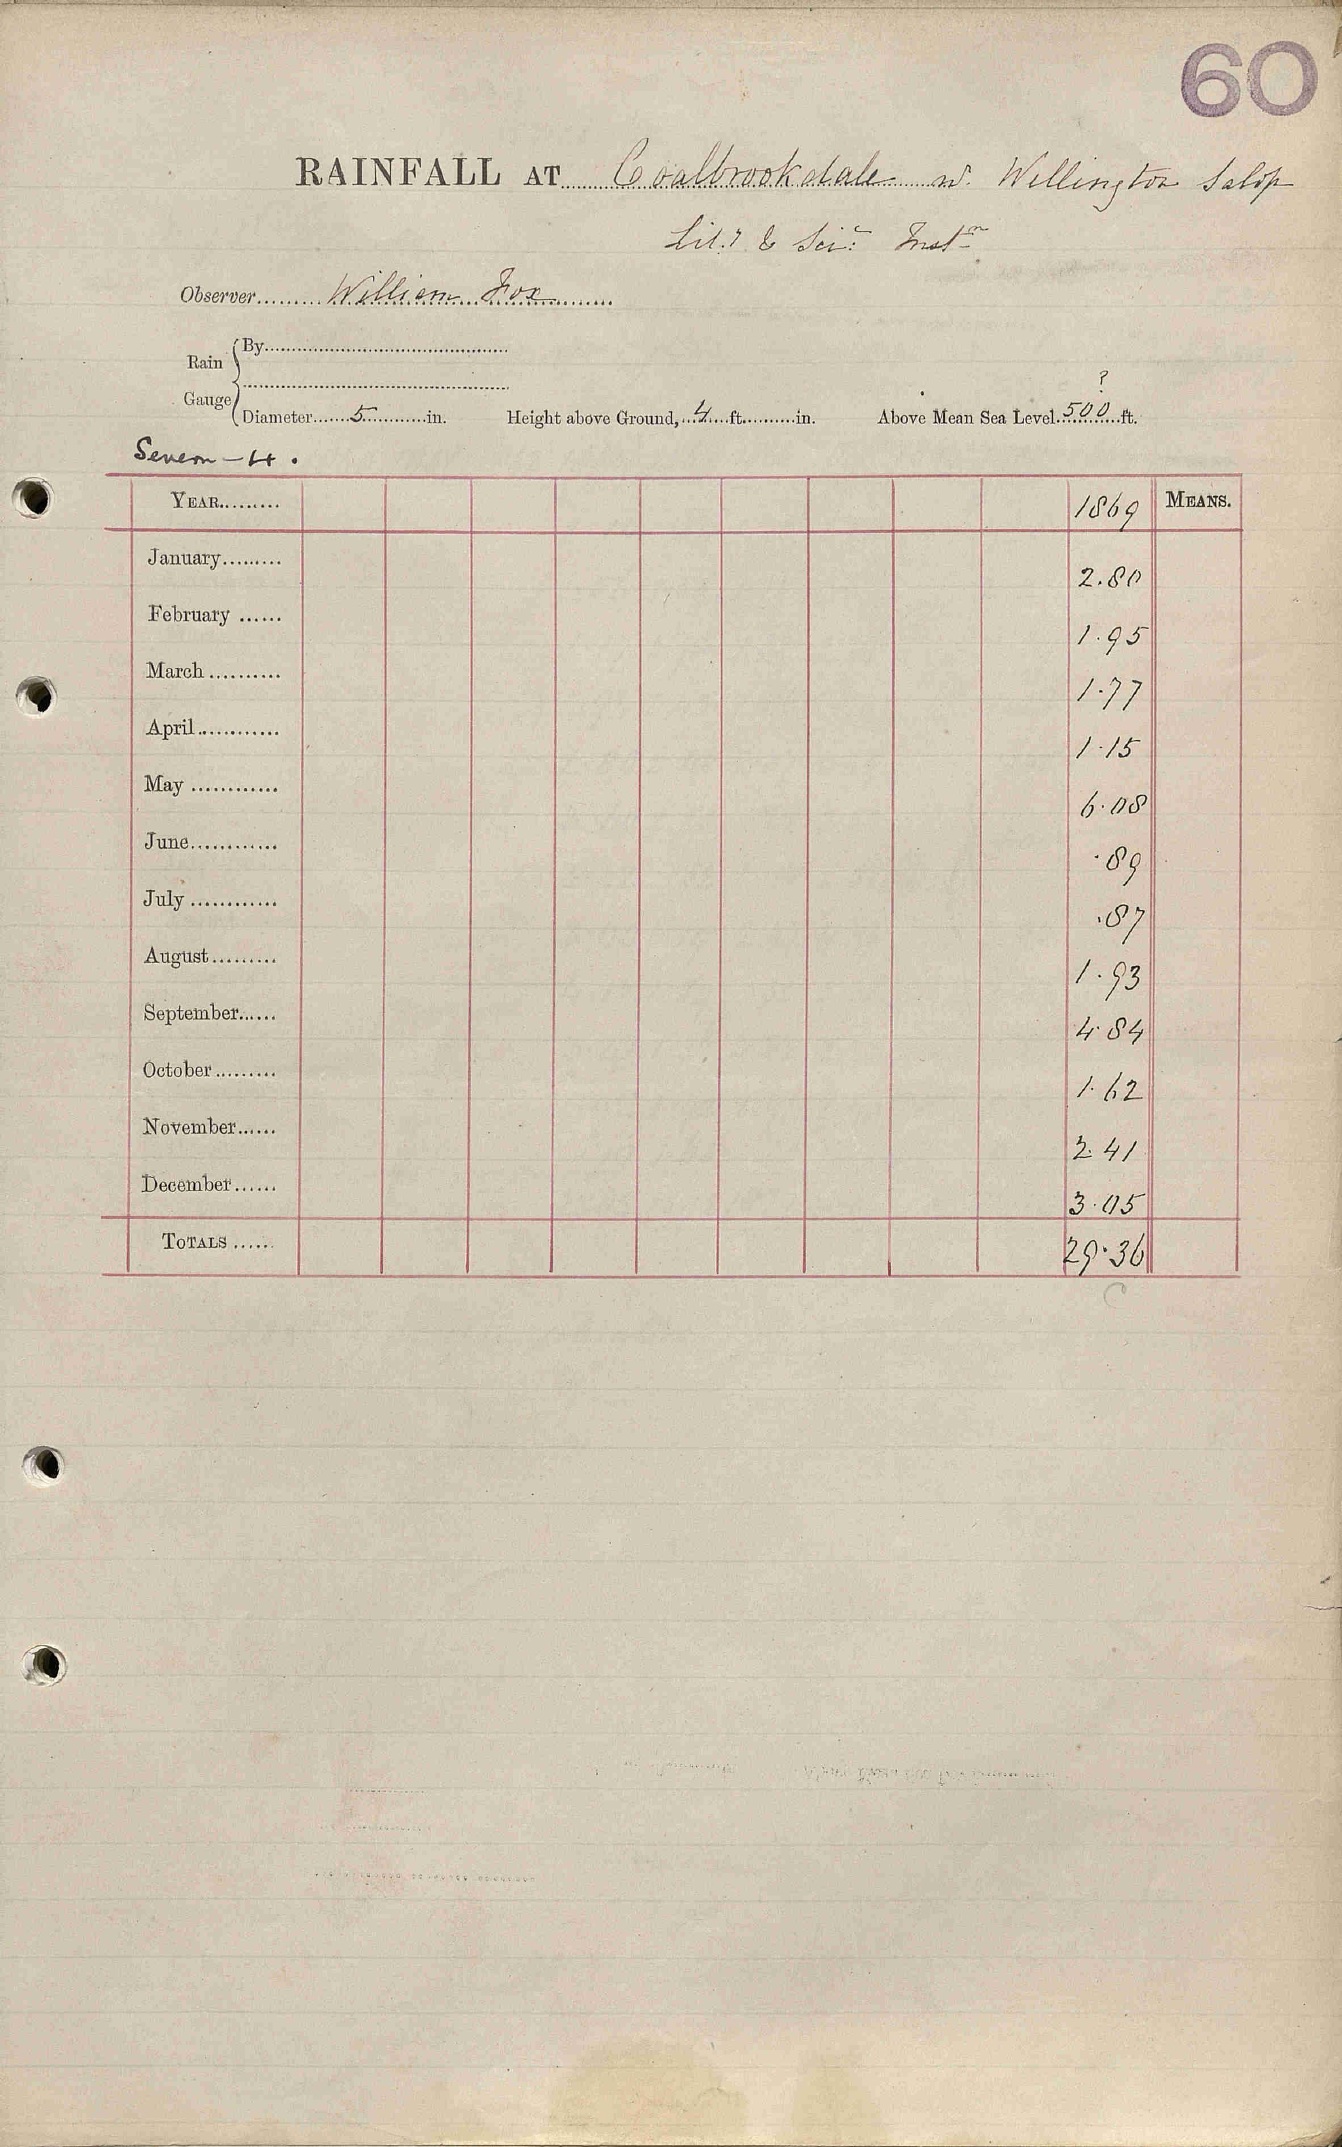 60
RAINFALL AT Coalbrookdale nr. Wellington Salop
Lit.y & Sci.c Inst.n
Observer William Fox
Rain Gauge
By
Diameter 5 in. Height above Ground, 4 ft. in. Above Mean Sea Level 500 ? ft.
Severn - 4.
YEAR 1869 MEANS.
January 2.80
February 1.95
March 1.77
April 1.15
May 6.08
June .89
July .87
August 1.93
September 4.84
October 1.62
November 2.41
December 3.05
TOTALS 29.36
C